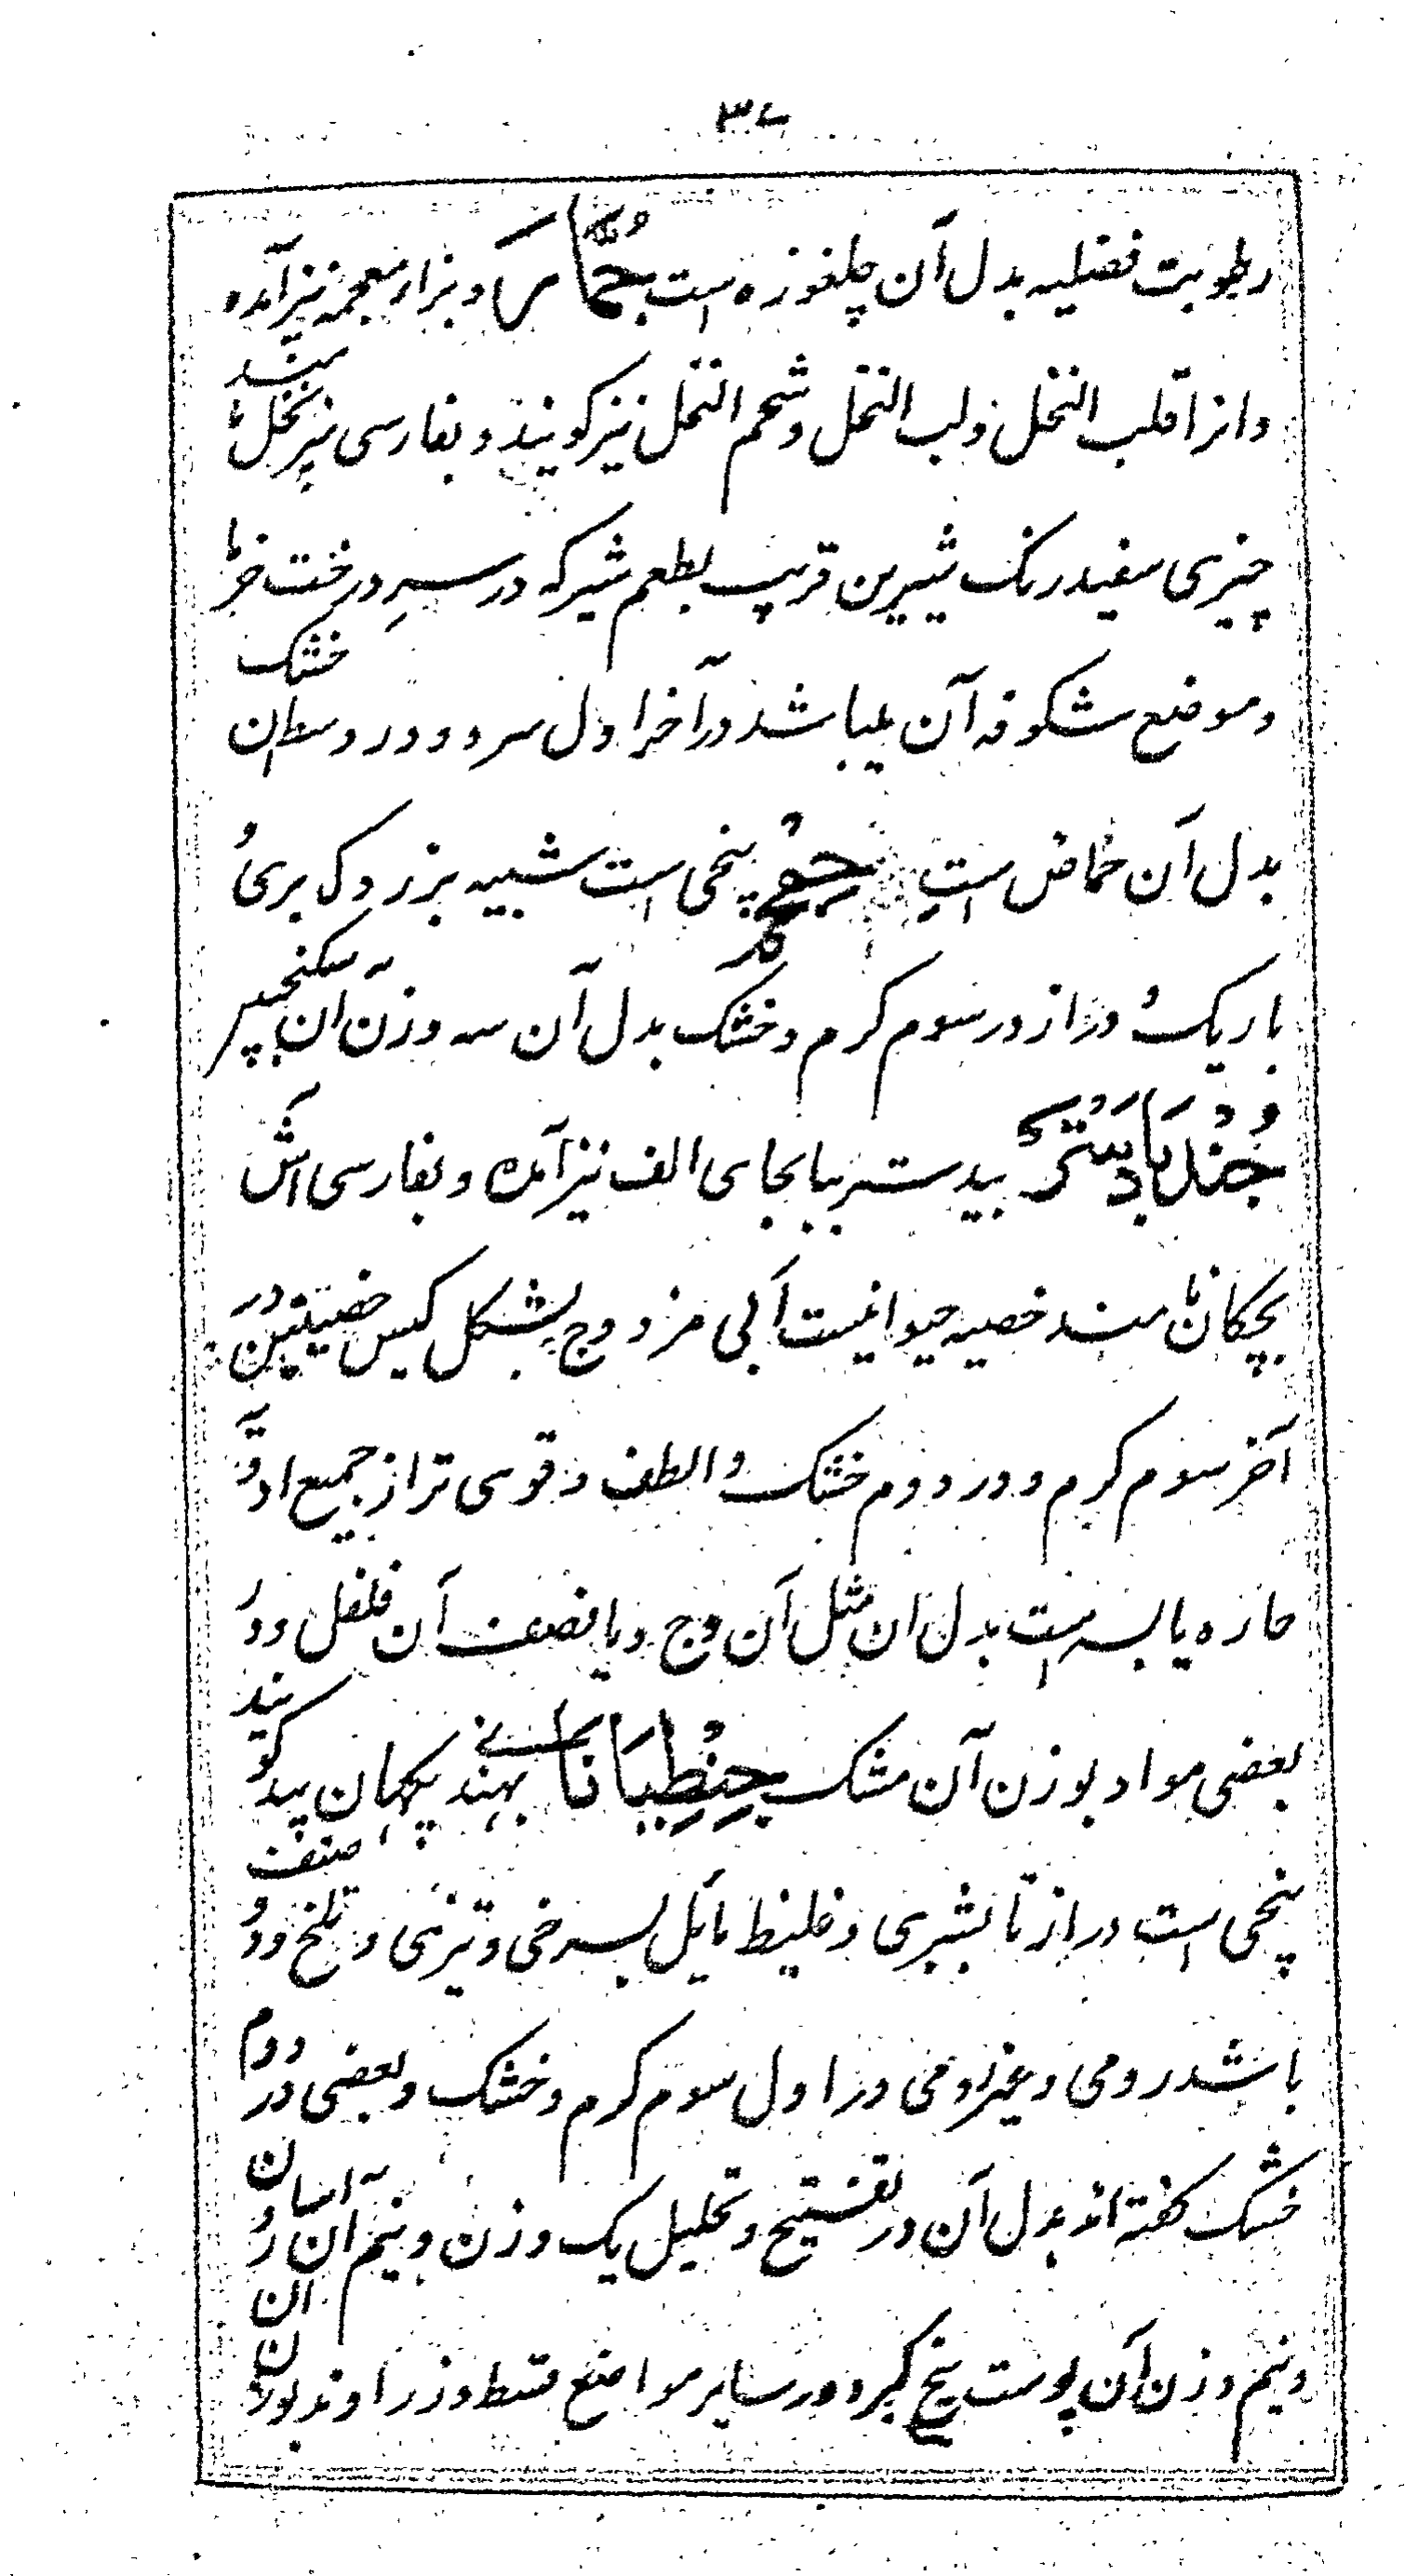 ۳۷
رطوبت فضلیه بدل آن چلغوزه است جُمَّار و بزاء معجمه نیز آمده
و انرا قلب النخل و لب النخل و شحم النخل نیز کویند و بفارسی پنیر نخل مانند
چیزی سفید رنک شیرین قریب بطعم شیر که در سرِ درخت خرما
و موضع شکوفه آن میباشد در آخر اول سرد و در وسط ان خشک
بدل آن حماض است بیخی است شبیه بزردک بری و
باریک و دراز در سوم کرم و خشک بدل آن سه وزن ان سکنجبیر
جُنْدبَادَسْتَر بیدستر بیا بجای الف نیز آمده و بفارسی اش
بچکان نامند خصیه حیوانیست آبی مزدوج بشکل کیس خصیتین در
آخر سوم کرم و در دوم خشک و الطف و قوی تر از جمیع ادویه
حاره یابسه است بدل ان مثل آن وج و یا نصف آن فلفل و در
بعضی مواد بوزن آن مشک جِنْطِیَانَا بهندی پکهان بید کویند
بیخی است دراز تا بشبری و غلیظ مایل بسرخی و تیزی و تلخ و دو صنف
باشد رومی و غیر رومی در اول سوم کرم و خشک و بعضی در دوم
خشک کفته اند بدل آن در تفتیح و تحلیل یک وزن و نیم آن اسارون
و نیم وزن آن پوست بیخ کبر و در سایر مواضع قسط و زراوند بوزن ان